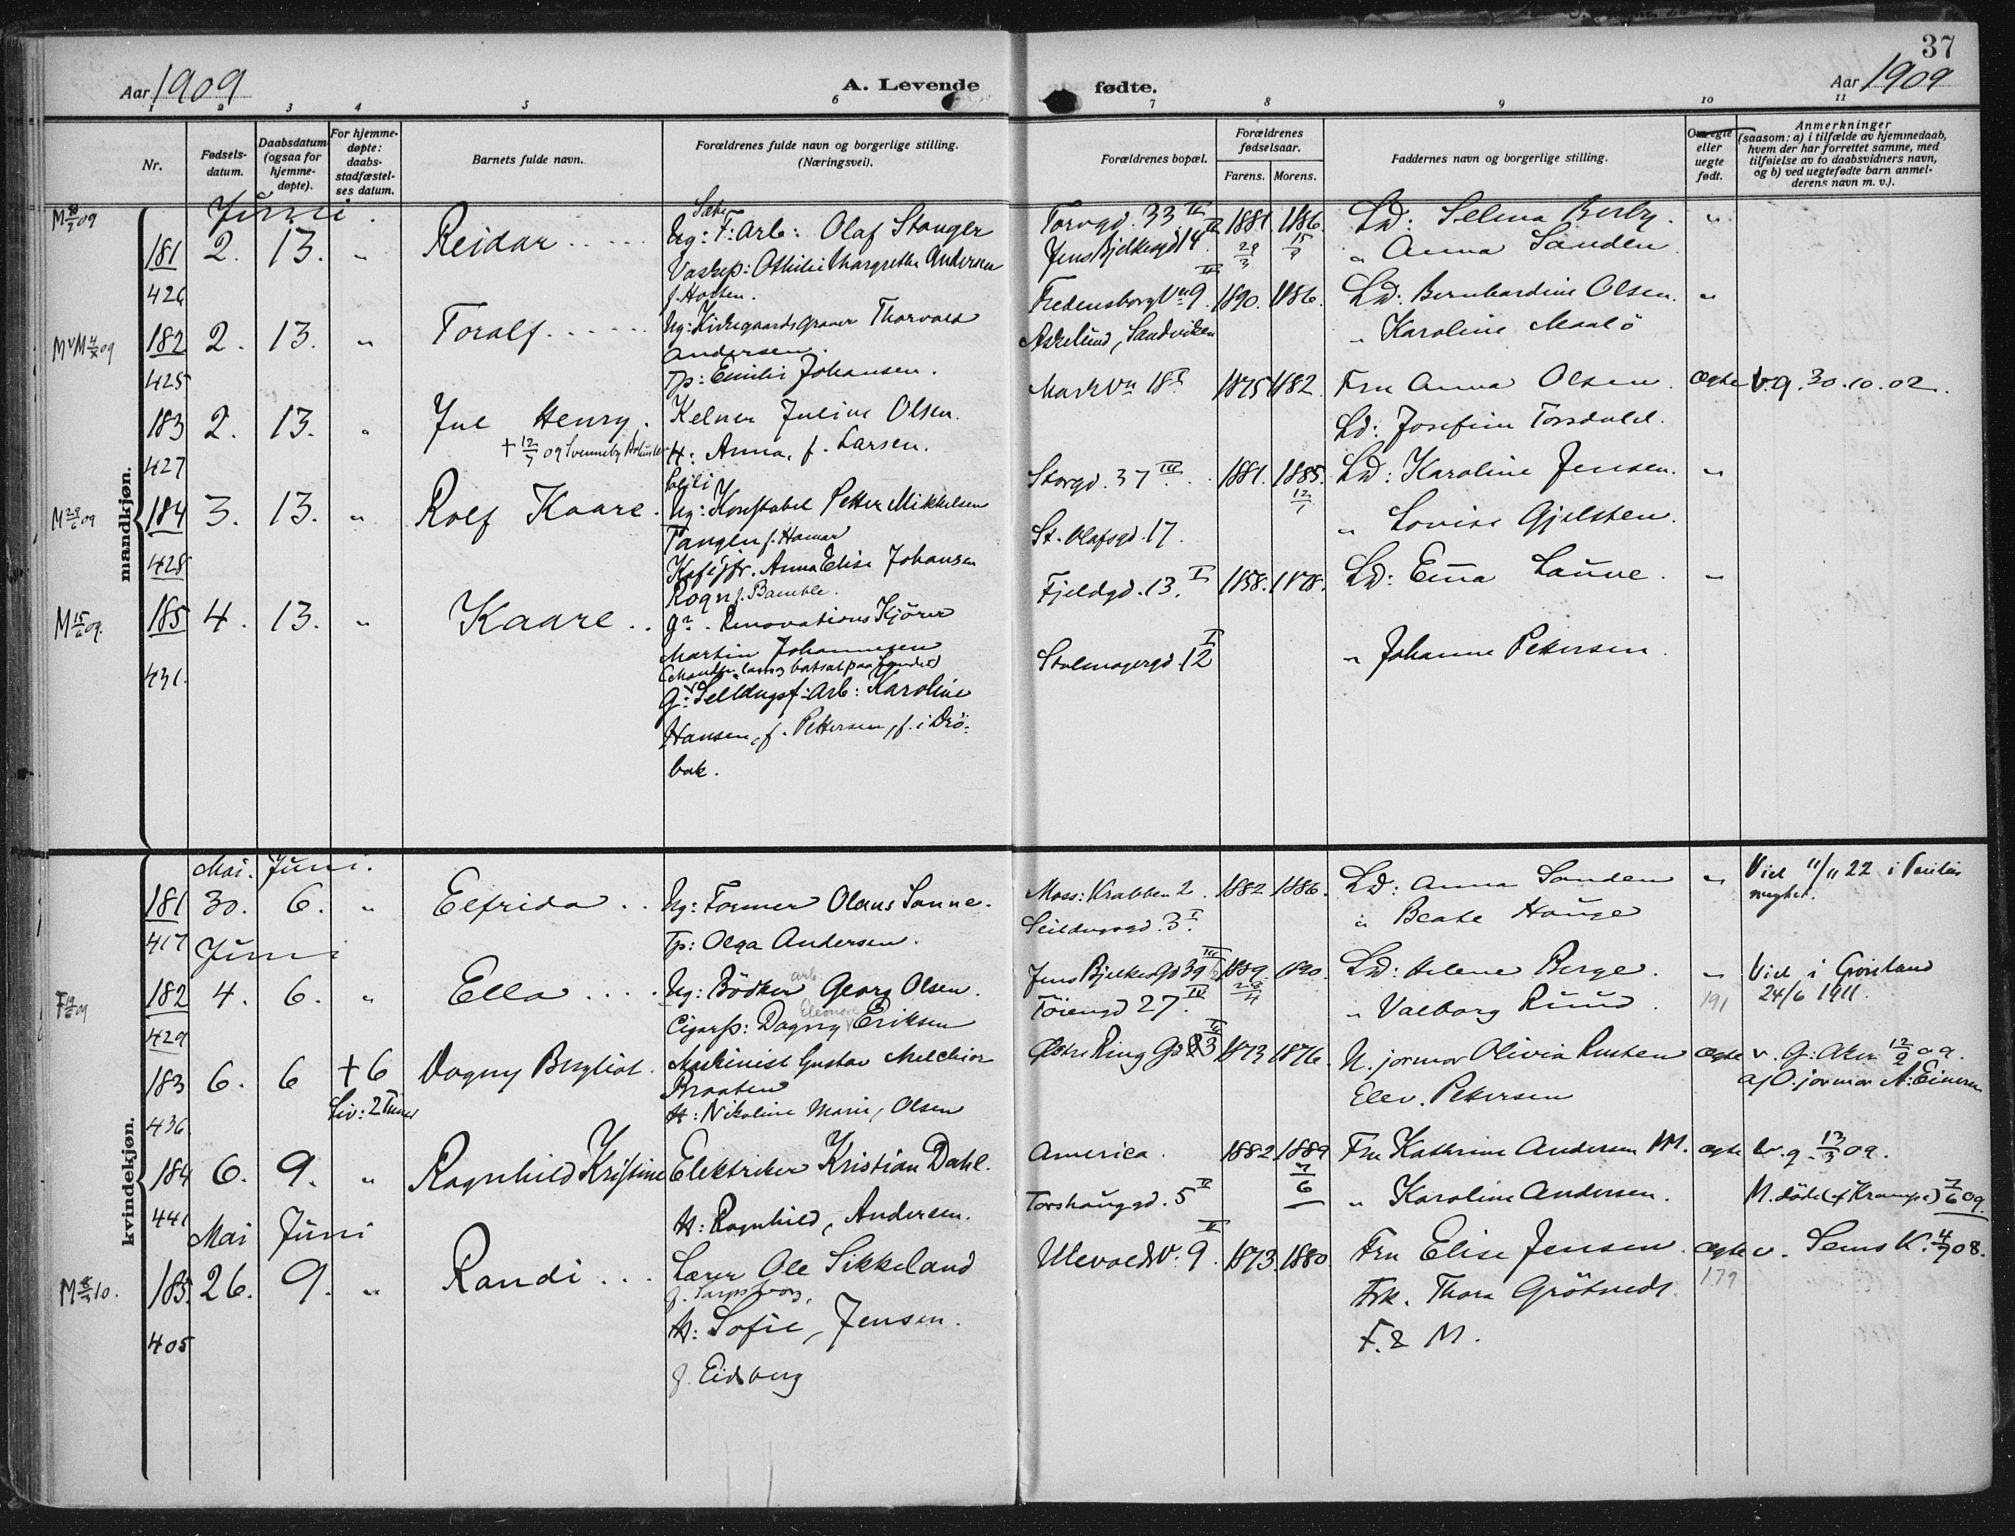 37
Aar 1909
A. Levende fødte.
Aar 1909
1 2 3 4 5 6 7 8 9 10 11
Nr.
Fødsels-
datum.
Daabsdatum
(ogsaa for
hjemme-
døpte).
For hjemme-
døpte:
daabs-
stadfæstel-
ses datum.
Barnets fulde navn.
Forældrenes fulde navn og borgerlige stilling.
(Næringsvei).
Forældrenes bopæl.
Forældrenes
fødselsaar.
Farens. Morens.
Faddernes navn og borgerlige stilling.
Om egte
eller
uegte
født.
Anmerkninger
(saasom: a) i tilfælde av hjemmedaab,
hvem der har forrettet samme, med
tilføielse av to daabsvidners navn,
og b) ved uegtefødte barn anmel-
derens navn m. v.).
mandkjøn.
Juni.
181 2. 13. „ Reidar
426
Ug: F: Arb: Olaf Stanger
Vaskep: Othilie Margrethe Andersen
f. Horten.
Torvgd. 33 IV
Jens Bjelkesgd 14 II
1881. 1886.
29/3
Ld: Selma Berby. „
„ Anna Sanden
182 2. 13. „ Toralf
425
Ug: Kirkegaardsgraver Thorvald
Andersen.
Tp: Emilie Johansen.
Fredensborgvn 9 II
Askelund, Sandviken
1890. 1886.
Ld: Bernhardine Olsen. „
„ Karoline Maalö
183 2. 13. „ Jul Henry.
427
Kelner Julius Olsen.
H: Anna, f. Larsen.
Markvn 18 I
1875 1882.
Fru Anna Olsen. ægte v. g. 30.10.02.
Ld: Josefine Torsdalel.
184 3. 13. „ Rolf Kaare.
428
Ug: Konstabel Petter Mikkelsen
Tangen f. Hamar
Kafejfr. Anna Elise Johansen
Rogn f. Bamble.
Storgd. 37 III
St. Olafsgd. 17.
1881. 1885.
Ld: Karoline Jensen. „
„ Lovise Gjelsten.
185 4. 13. „ Kaare
431.
gm. Renovations Kjører
Martin Johannesen
g: Seildugsf: Arb: Karoline
Hansen, f. Pettersen, f. i Drö-
bak.
Fjeldgd. 13. I
Stolmagergd. 12 I
1858. 1878.
Ld: Emma Laune. „
„ Johanne Petersen.
kvindekjøn.
Mai. Juni.
181 30. 6. „ Elfrida
417
Ug: Former Olaus Sanne.
Tp: Olga Andersen.
Moss: Krabben 2.
Seildugsgd. 3. I
1882 1886.
Ld: Anna Sanden „
„ Beate Hauge
Viet 11/11 22 i
Juni
182 4. 6. „ Ella
429
Ug: Bödker arb Georg Olsen.
Cigarp: Dagny Eleonore Eriksen
Jens Bjelkesgd 39 III
Töiengd 27. IV
1889. 1890.
Ld: Helene Berge. „
„ Valborg Ruud.
191
Viet i Grønland
24/6 1911.
183 6. 6 † 6
Liv: 2 Timer
436.
Dagny Bergliot.
Maskinist Gustav Melchior
Braaten
H: Nikoline Marie, Olsen
1873 1876.
N. jormor Olivia Rusten ægte
Elev. Petersen
v. g: Aker 12/2 09.
af O. jormor A: Einersen
184 6. 9. „ Ragnhild Kristine
441
Elektriker Kristian Dahl.
H: Ragnhild, Andersen.
America.
Torshaugd. 5 IV
1882 1889
Fru Kathrine Andersen MM. ægte v. g. 13/3 09.
„ Karoline Andersen.
M. döde (af Krampe) 7/6 09.
Mai Juni
185. 26. 9. „ Randi
405
Lærer Ole Sikkeland
f. Sarpsborg.
H: Sofie, Jensen.
f. Eidsberg
Ulevoldsv. 9 II
1873. 1880.
Fru Elise Jensen. ægte v. Sems K. 4/7 08.
Frk. Thora Grötvedt
F. & M.
179